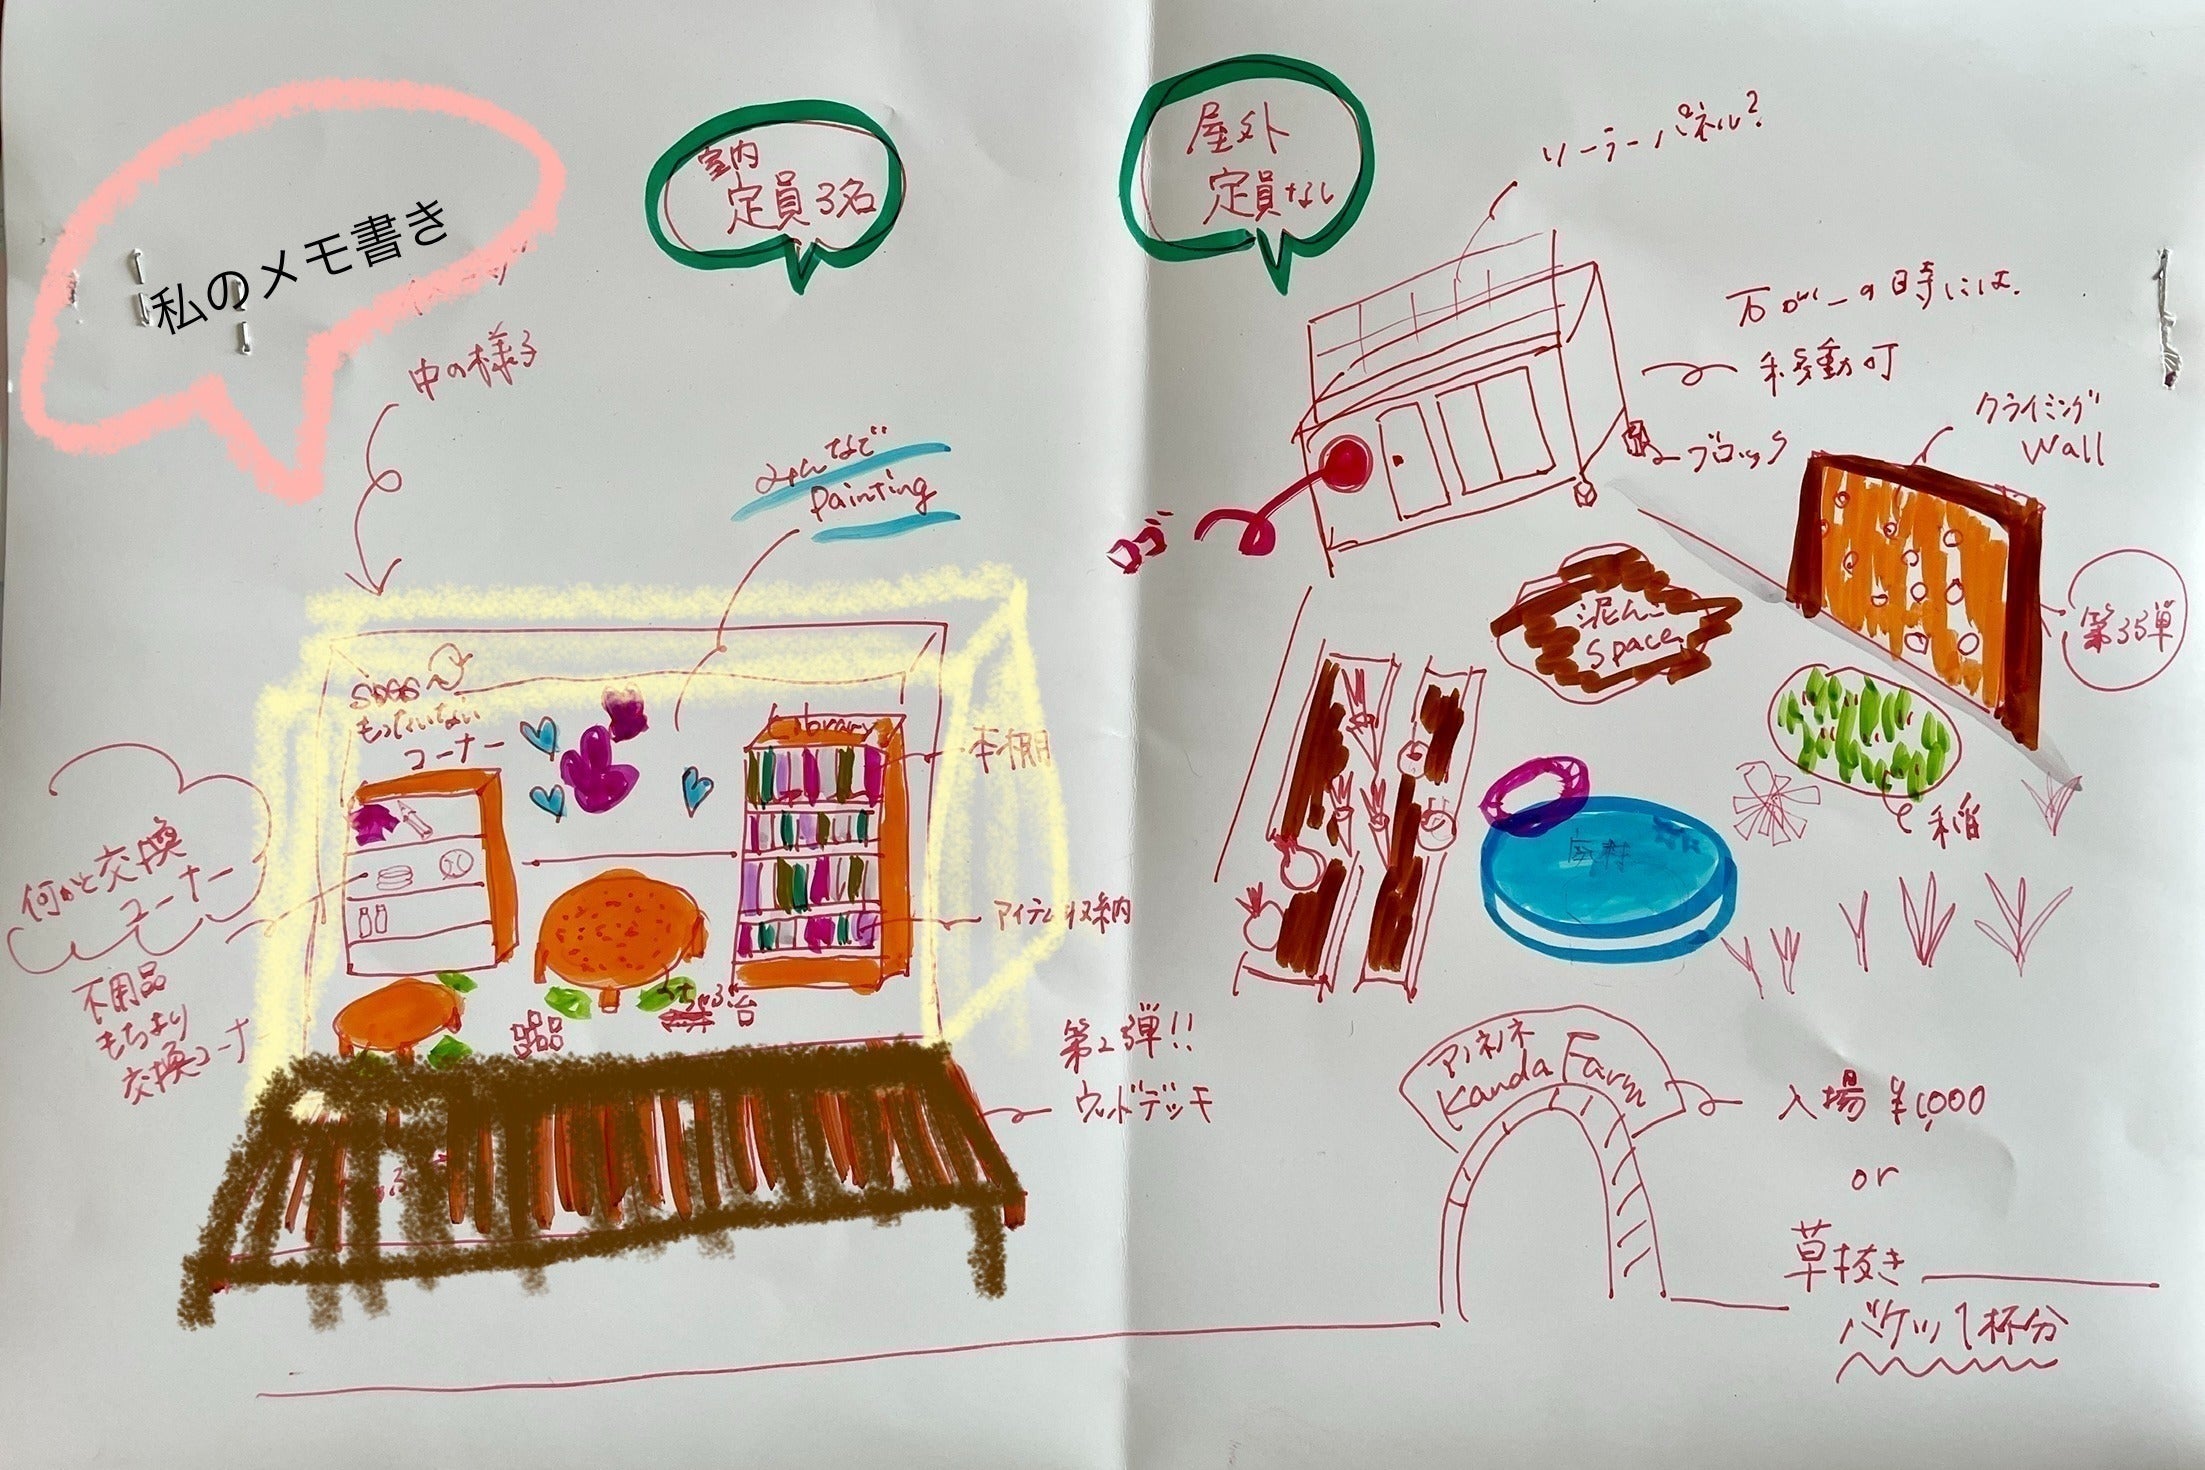 私のメモ書き
中の様子
室内
定員3名
みんなで
Painting
SDGs
もったいない
コーナー
Library
本棚
アイテム収納
何かと交換
コーナー
不用品
もちより
交換コーナー
ちゃぶ台
第2弾!!
ウッドデッキ
屋外
定員なし
ソーラーパネル?
万が一の時には、
移動可
ブロック
ロゴ
クライミング
Wall
第3弾
泥んこ
Space
稲
廃材
アノネノネ
Kanda Farm
入場 ¥1,000
or
草抜き
バケツ1杯分